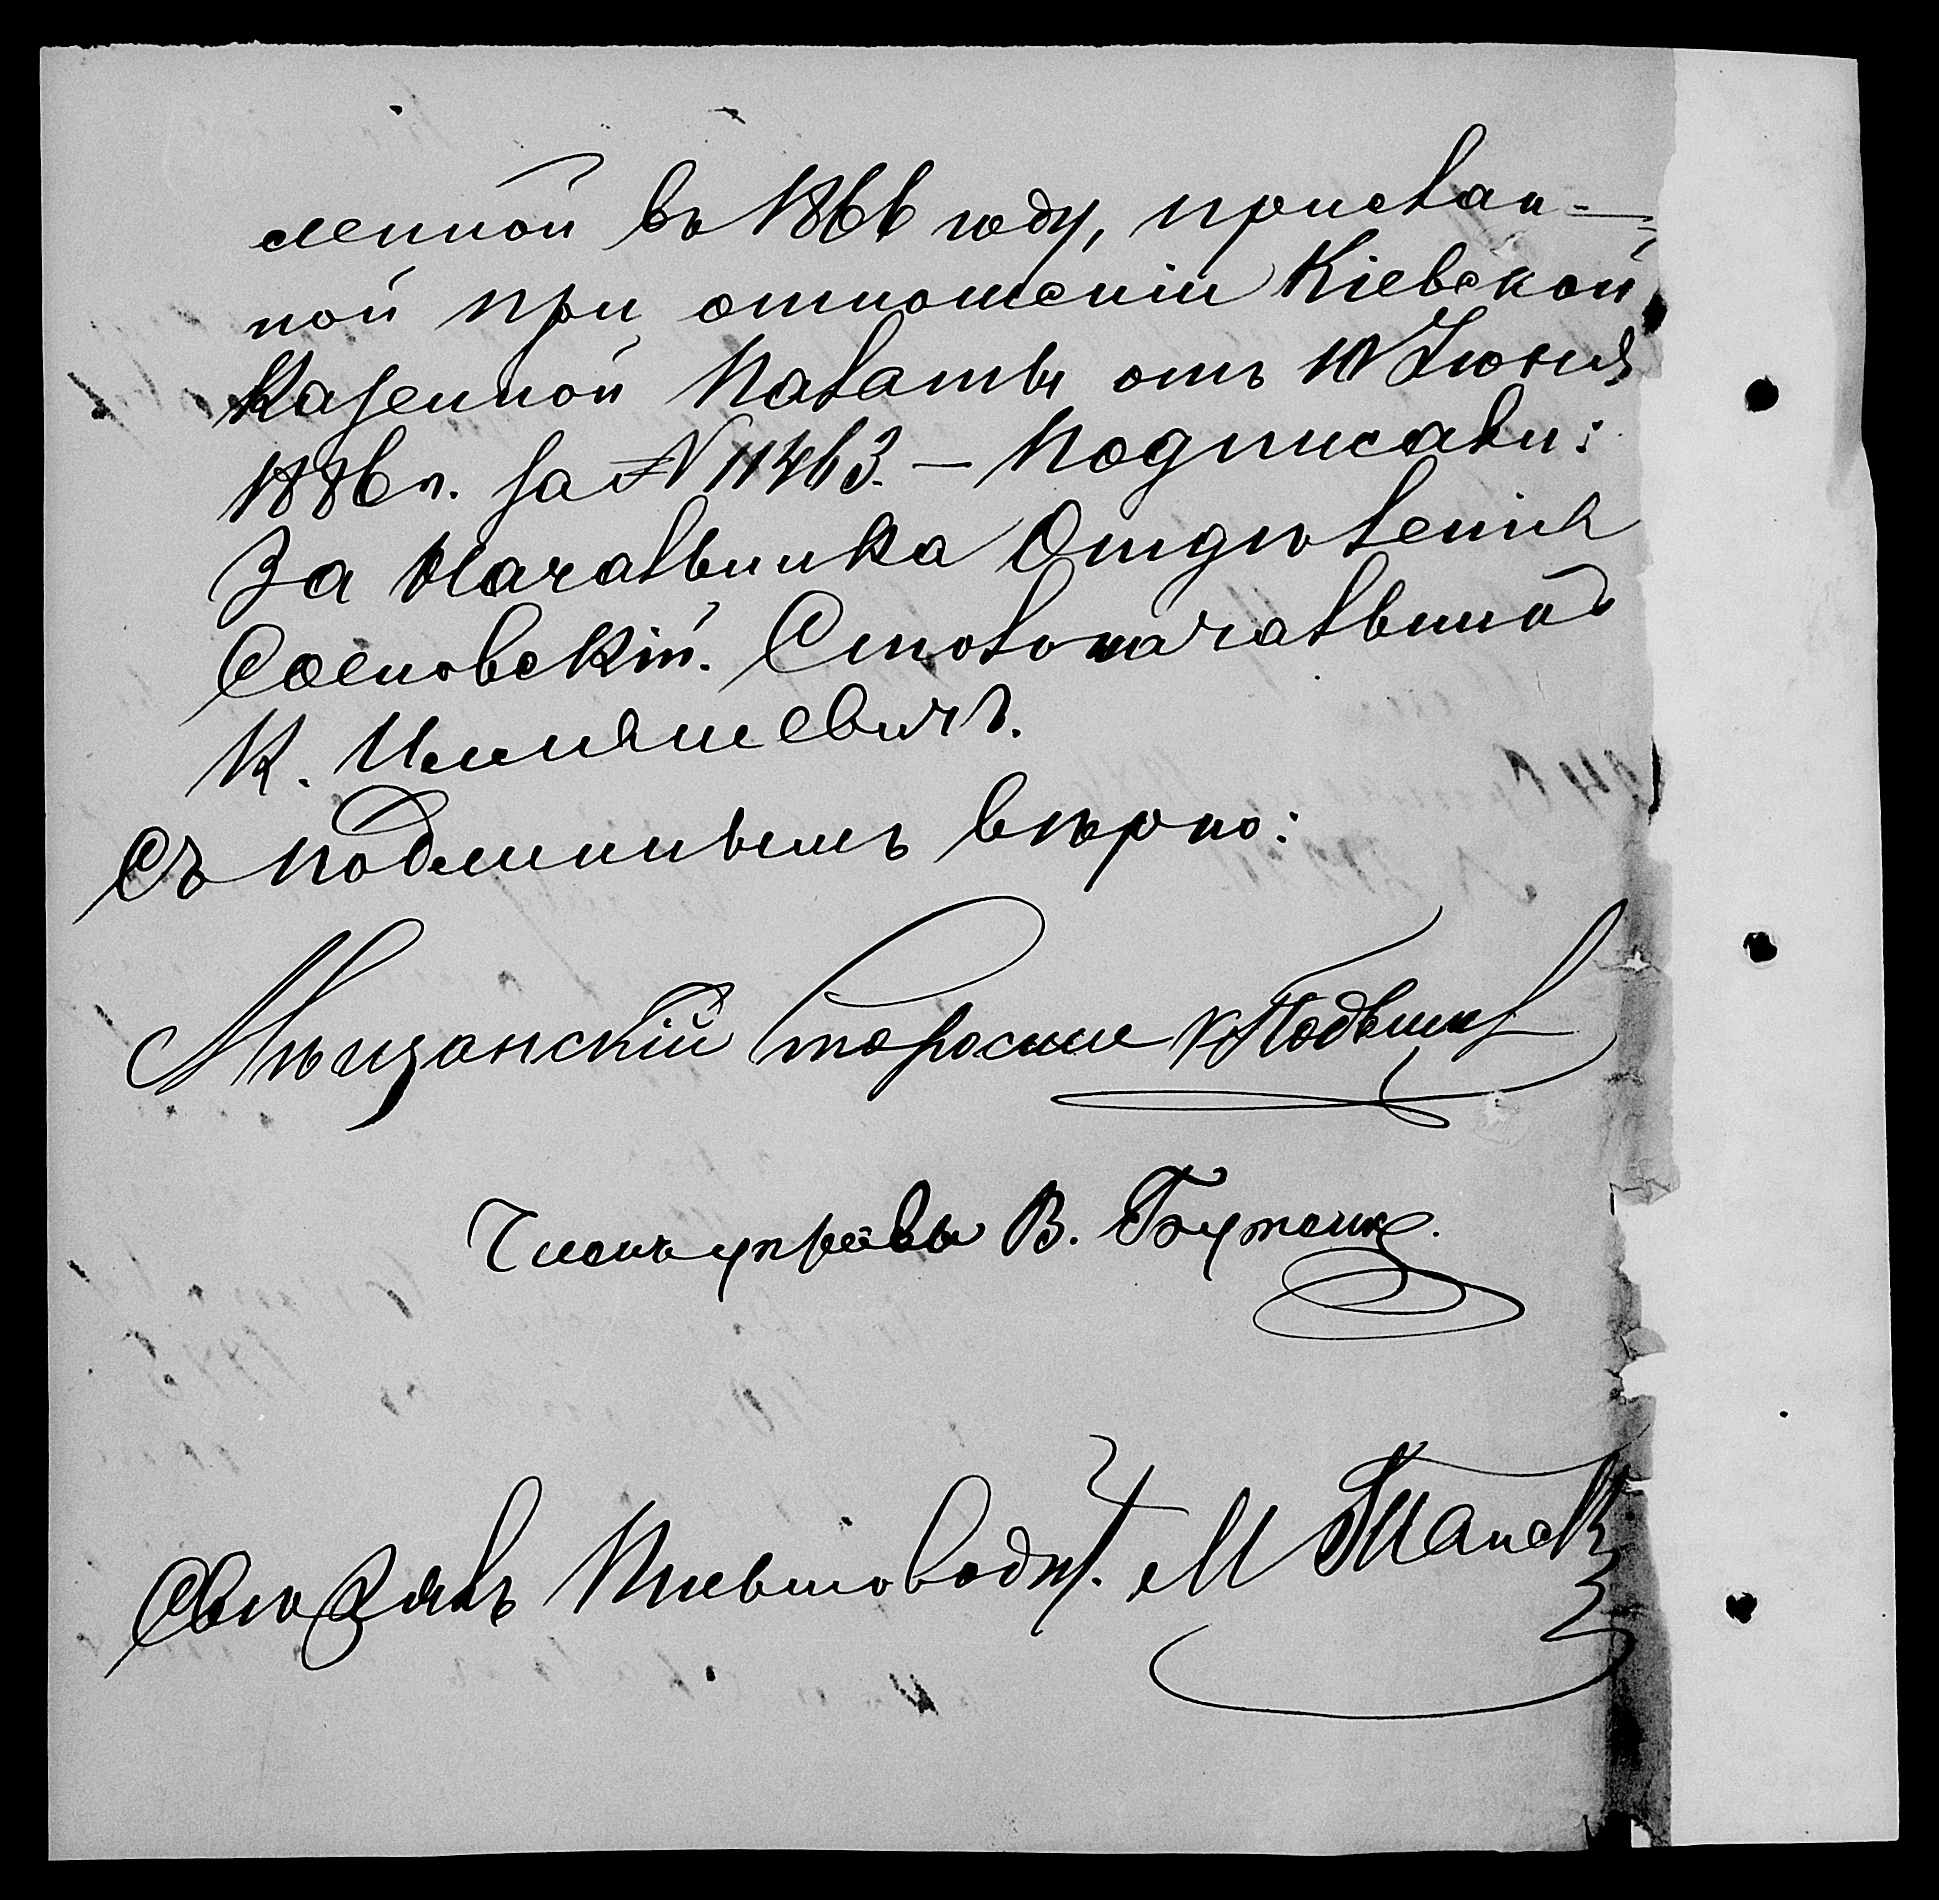 ленной въ 1866 году, прислан-
ной при отношеніи Кіевской
Казенной Палаты отъ 10 Іюня
1886 г. за № 11463. — Подписали:
За Начальника Отдѣленія
Сосновскій. Столоначальникъ
К.
Съ подлиннымъ вѣрно:
Мѣщанскій Староста
Членъ управы В. Бутенко.
Свѣрялъ Письмоводит. М